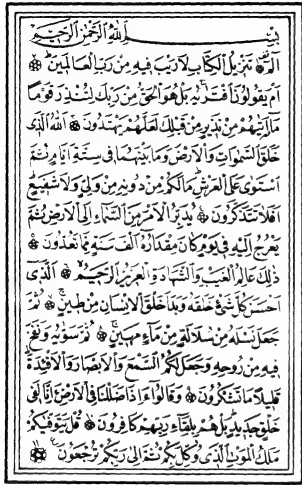 بِسْمِ اللّٰهِ الرَّحْمٰنِ الرَّحِيْمِ
الٓمّٓ تَنْزِيْلُ الْكِتَابِ لَارَيْبَ فِيْهِ مِنْ رَبِّ الْعَالَمِيْنَ
اَمْ يَقُوْلُوْنَ افْتَرٰيهُ بَلْ هُوَ الْحَقُّ مِنْ رَبِّكَ لِتُنْذِرَ قَوْمًا
مَا اَتٰيهُمْ مِنْ نَذِيْرٍ مِنْ قَبْلِكَ لَعَلَّهُمْ يَهْتَدُوْنَ اَللّٰهُ الَّذِى
خَلَقَ السَّمٰوَاتِ وَالْاَرْضَ وَمَا بَيْنَهُمَا فِى سِتَّةِ اَيَّامٍ ثُمَّ
اسْتَوٰى عَلَى الْعَرْشِ مَالَكُمْ مِنْ دُوْنِهِ مِنْ وَلِىٍّ وَلَا شَفِيْعٍ
اَفَلَا تَتَذَكَّرُوْنَ يُدَبِّرُ الْاَمْرَ مِنَ السَّمَاءِ اِلَى الْاَرْضِ ثُمَّ
يَعْرُجُ اِلَيْهِ فِى يَوْمٍ كَانَ مِقْدَارُهُ اَلْفَ سَنَةٍ مِمَّا تَعُدُّوْنَ
ذٰلِكَ عَالِمُ الْغَيْبِ وَالشَّهَادَةِ الْعَزِيْزُ الرَّحِيْمُ اَلَّذِى
اَحْسَنَ كُلَّ شَىْءٍ خَلَقَهُ وَبَدَاَ خَلْقَ الْاِنْسَانِ مِنْ طِيْنٍ ثُمَّ
جَعَلَ نَسْلَهُ مِنْ سُلَالَةٍ مِنْ مَاءٍ مَهِيْنٍ ثُمَّ سَوّٰيهُ وَنَفَخَ
فِيْهِ مِنْ رُوْحِهِ وَجَعَلَ لَكُمُ السَّمْعَ وَالْاَبْصَارَ وَالْاَفْئِدَةَ
قَلِيْلًا مَا تَشْكُرُوْنَ وَقَالُوْا ءَاِذَا ضَلَلْنَا فِى الْاَرْضِ ءَاِنَّا لَفِى
خَلْقٍ جَدِيْدٍ بَلْ هُمْ بِلِقَاءِ رَبِّهِمْ كَافِرُوْنَ قُلْ يَتَوَفّٰيكُمْ
مَلَكُ الْمَوْتِ الَّذِى وُكِّلَ بِكُمْ ثُمَّ اِلٰى رَبِّكُمْ تُرْجَعُوْنَ